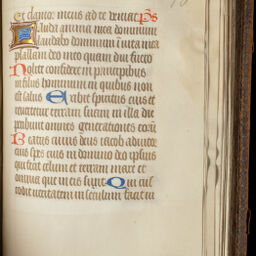 Et clamor meus ad te veniat. Ps
Lauda anima mea dominum
laudabo dominum in vita mea
psallam deo meo quam diu fuero
Nolite confidere in principibus
in filiis hominum in quibus non
est salus Exibit spiritus eius et
revertetur terram suam in illa die
peribunt omnes cogitationes eorum
Beatus cuius deus iacob adiutor
eius spes eius in domino deo ipsius
qui fecit celum et terram mare et
omnia que in eis sunt Qui cus
todit veritatem in seculum facit iu